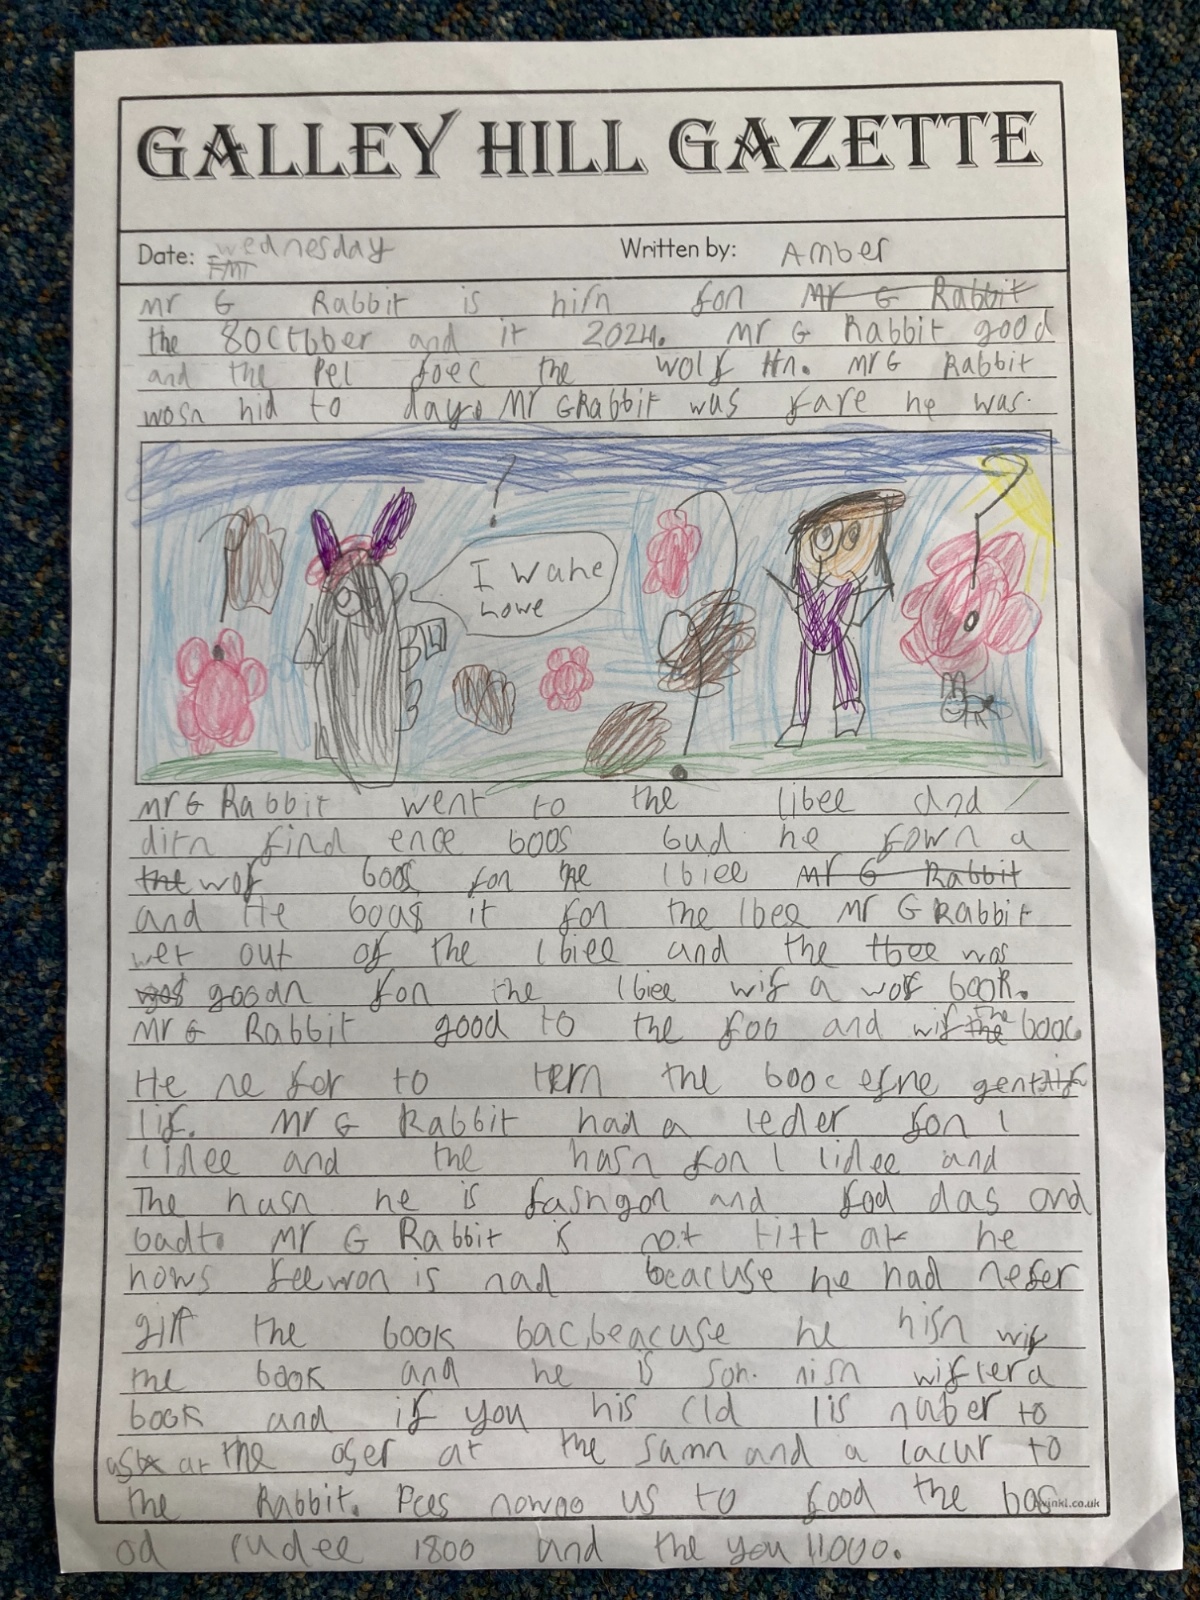 GALLEY HILL GAZETTE
Date: wednesday
Written by: Amber
Mr G Rabbit is hisn fon Mr G Rabbit
the 8Octbber and it 2024. Mr G Rabbit good
and the Pel foec the wolf Hn. Mr G Rabbit
wosn hid to day. Mr GRabbit was fare he was.
I wane
Lowe
Mr G Rabbit went to the libee and
ditn find ence boos bud he fown a
the wof boos fon the lbiee Mr G Rabbit
and He boas it fon the lbee Mr G Rabbit
wet out of the lbiee and the lbee was
was goodn fon the lbiee wif a wolf book.
Mr G Rabbit good to the foo and wif the the booc
He ne fer to tern the booc efne gent
lif. Mr G Rabbit had a leder fon l
lidee and the hasn fon l lidee and
The hasn he is fasngon and fod das and
badt. Mr G Rabbit is not titt at he
nows feewon is nad beacuse he had nefer
gift the book bac, beacuse he hisn wif
the book and he is son. nisn wif lera
book and if you his cld lis nuber to
ask at the ofer at the samn and a lacur to
the Rabbit. Pees nowgo us to food the bos
twinkl.co.uk
od rudee 1800 and the you 11000.